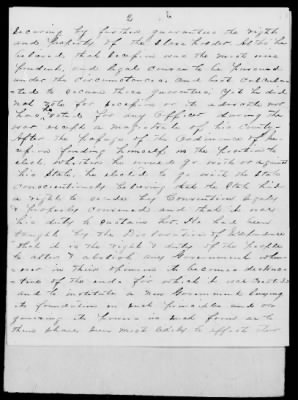 2 6
securing by further guarantees the rights
and property of the Slave holder. As he
believed, that Secession was the most
prudent, and legal course to be pursued
under the circumstances and best calcula-
ted to secure those guarantees. Yet he did
not vote for secession or its advocate nor
has he voted for any officer, during the
war except a magistrate of his County.
After the passage of the Ordinance of
finding himself in the position to
elect, whether he would go with or against
his State, he elected to go with the State
conscientiously believing that the State had
a right to secede by Convention legally
& properly convened and that it was
his duty to sustain her. He had been
taught by the Declaration of Independence
that it is the right & duty of the people
to alter & abolish any Government when-
ever in their opinion it becomes destruc-
tive of the ends for which it was created
and to institute a new Government laying
its foundation on such principles and or-
ganizing its powers in such form as to
them shall seem most likely to effect their